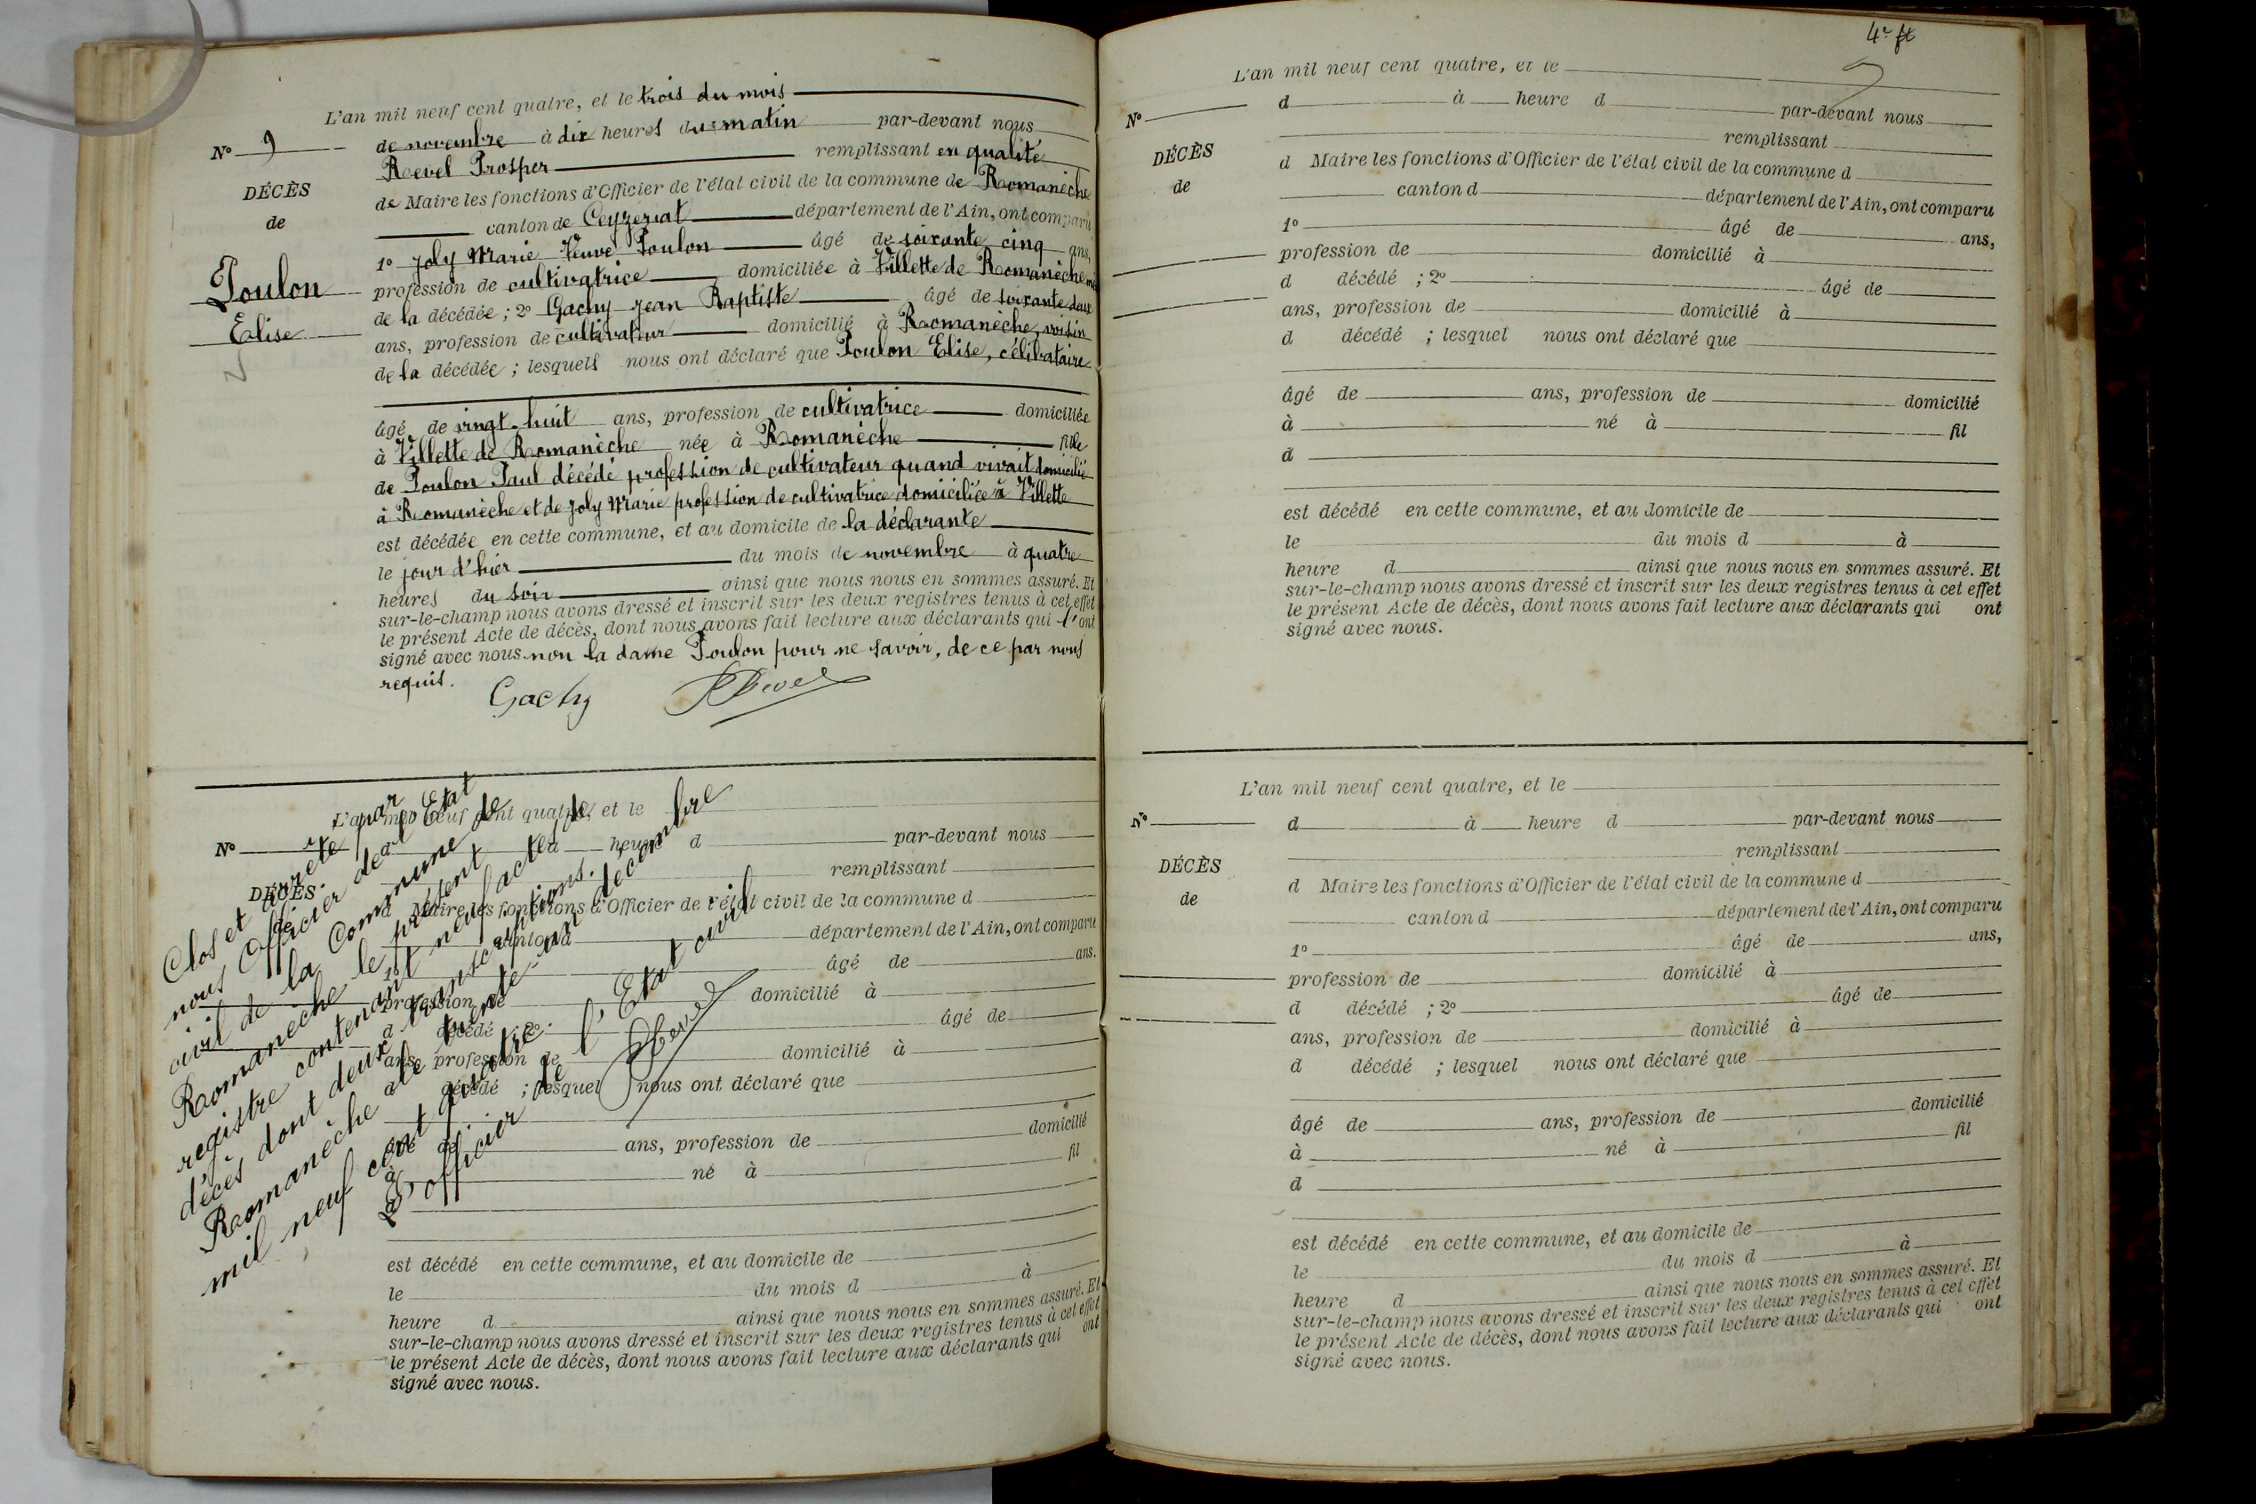 L'an mil neuf cent quatre, et le trois du mois
N° 9
de novembre à dix heures du matin par-devant nous
Revel Prosper remplissant en qualité
DÉCÈS
de Maire les fonctions d'Officier de l'état civil de la commune de Romanèche
de
canton de Ceyzériat département de l'Ain, ont comparu
1° Joly Marie Veuve Poulon âgé de soixante cinq ans,
Poulon
profession de cultivatrice domiciliée à Villette de Romanèche
de la décédée ; 2° Gachy Jean Baptiste âgé de soixante deux
Elise
ans, profession de cultivateur domicilié à Romanèche, voisin
de la décédée ; lesquels nous ont déclaré que Poulon Elise, célibataire
âgé de vingt-huit ans, profession de cultivatrice domiciliée
à Villette de Romanèche née à Romanèche fille
de Poulon Paul décédé profession de cultivateur quand vivait domicilié
à Romanèche et de Joly Marie profession de cultivatrice domiciliée à Villette
est décédée en cette commune, et au domicile de la déclarante
le jour d'hier du mois de novembre à quatre
heures du soir ainsi que nous nous en sommes assuré. Et
sur-le-champ nous avons dressé et inscrit sur les deux registres tenus à cet effet
le présent Acte de décès, dont nous avons fait lecture aux déclarants qui l'ont
signé avec nous non la dame Poulon pour ne savoir, de ce par nous
requis.
Gachy PRevel
L'an mil neuf cent quatre, et le
N°
d à heure d par-devant nous
remplissant
DÉCÈS
d Maire les fonctions d'Officier de l'état civil de la commune d
de
canton d département de l'Ain, ont comparu
1° âgé de ans.
profession de domicilié à
d décédé ; 2° âgé de
ans, profession de domicilié à
d décédé ; lesquel nous ont déclaré que
âgé de ans, profession de domicilié
à né à fil
d
est décédé en cette commune, et au domicile de
le du mois d à
heure d ainsi que nous nous en sommes assuré. Et
sur-le-champ nous avons dressé et inscrit sur les deux registres tenus à cet effet
le présent Acte de décès, dont nous avons fait lecture aux déclarants qui ont
signé avec nous.
Clos et arrêté par
nous Officier de l'Etat
civil de la Commune de
Romanèche le présent
registre contenant neuf actes de
décès dont deux transcriptions.
Romanèche le trente-un décembre
mil neuf cent quatre.
L'officier de l'Etat civil
PRevel
L'an mil neuf cent quatre, et le
N°
d à heure d par-devant nous
remplissant
DÉCÈS
d Maire les fonctions d'Officier de l'état civil de la commune d
de
canton d département de l'Ain, ont comparu
1° âgé de ans,
profession de domicilié à
d décédé ; 2° âgé de
ans, profession de domicilié à
d décédé ; lesquel nous ont déclaré que
âgé de ans, profession de domicilié
à né à fil
d
est décédé en cette commune, et au domicile de
le du mois d à
heure d ainsi que nous nous en sommes assuré. Et
sur-le-champ nous avons dressé et inscrit sur les deux registres tenus à cet effet
le présent Acte de décès, dont nous avons fait lecture aux déclarants qui ont
signé avec nous.
L'an mil neuf cent quatre, et le
N°
d à heure d par-devant nous
remplissant
DÉCÈS
d Maire les fonctions d'Officier de l'état civil de la commune d
de
canton d département de l'Ain, ont comparu
1° âgé de ans,
profession de domicilié à
d décédé ; 2° âgé de
ans, profession de domicilié à
d décédé ; lesquel nous ont déclaré que
âgé de ans, profession de domicilié
à né à fil
d
est décédé en cette commune, et au domicile de
le du mois d à
heure d ainsi que nous nous en sommes assuré. Et
sur-le-champ nous avons dressé et inscrit sur les deux registres tenus à cet effet
le présent Acte de décès, dont nous avons fait lecture aux déclarants qui ont
signé avec nous.